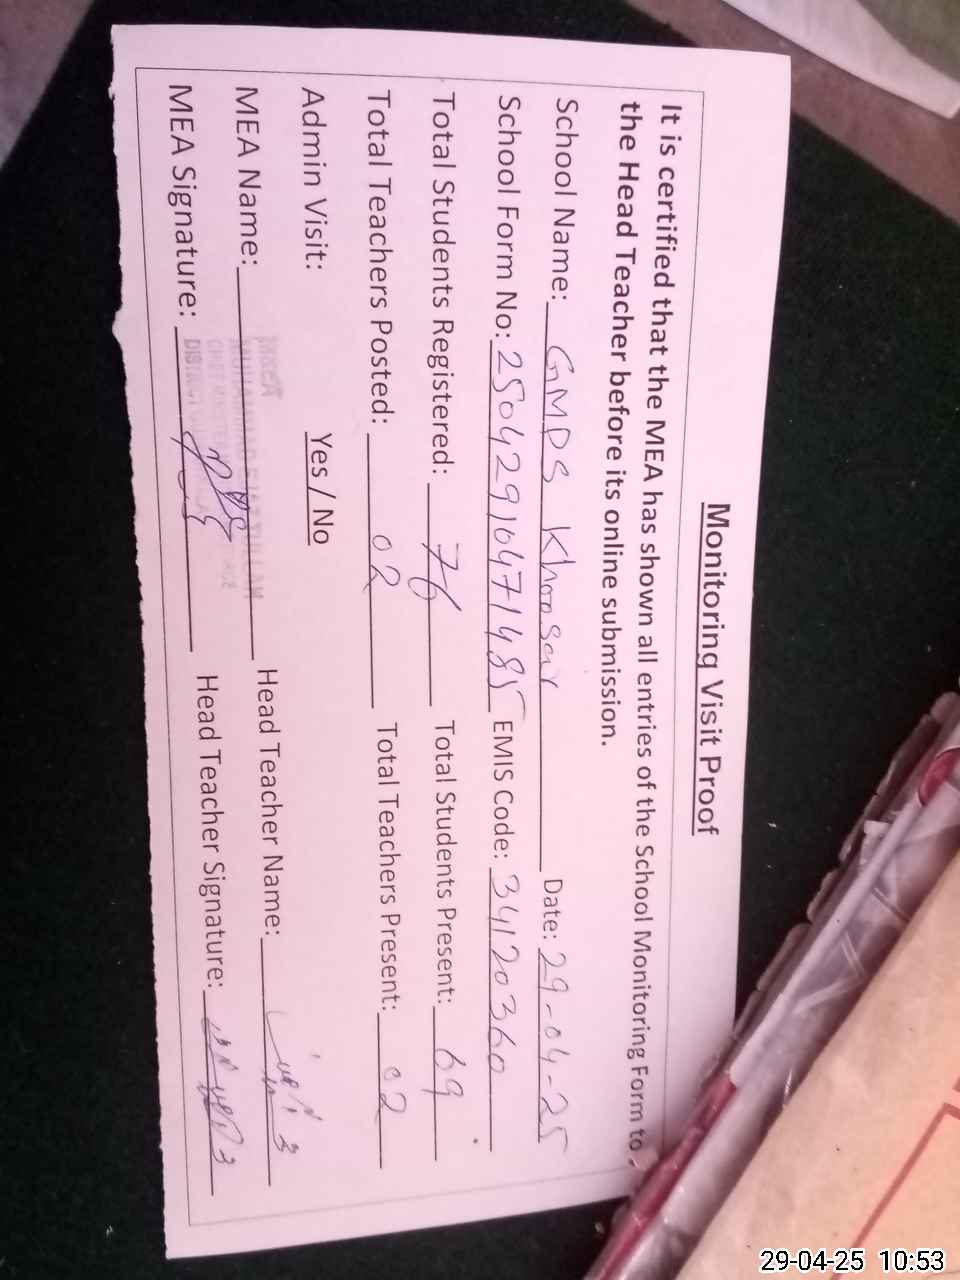 Monitoring Visit Proof
It is certified that the MEA has shown all entries of the School Monitoring Form to
the Head Teacher before its online submission.
School Name: GMPS Khonsar Date: 29-04-25
School Form No: 25042910471485 EMIS Code: 34120360
Total Students Registered: 76 Total Students Present: 69
Total Teachers Posted: 02 Total Teachers Present: 02
Admin Visit: Yes / No
MEA Name: Head Teacher Name:
MEA Signature: Head Teacher Signature:
29-04-25 10:53